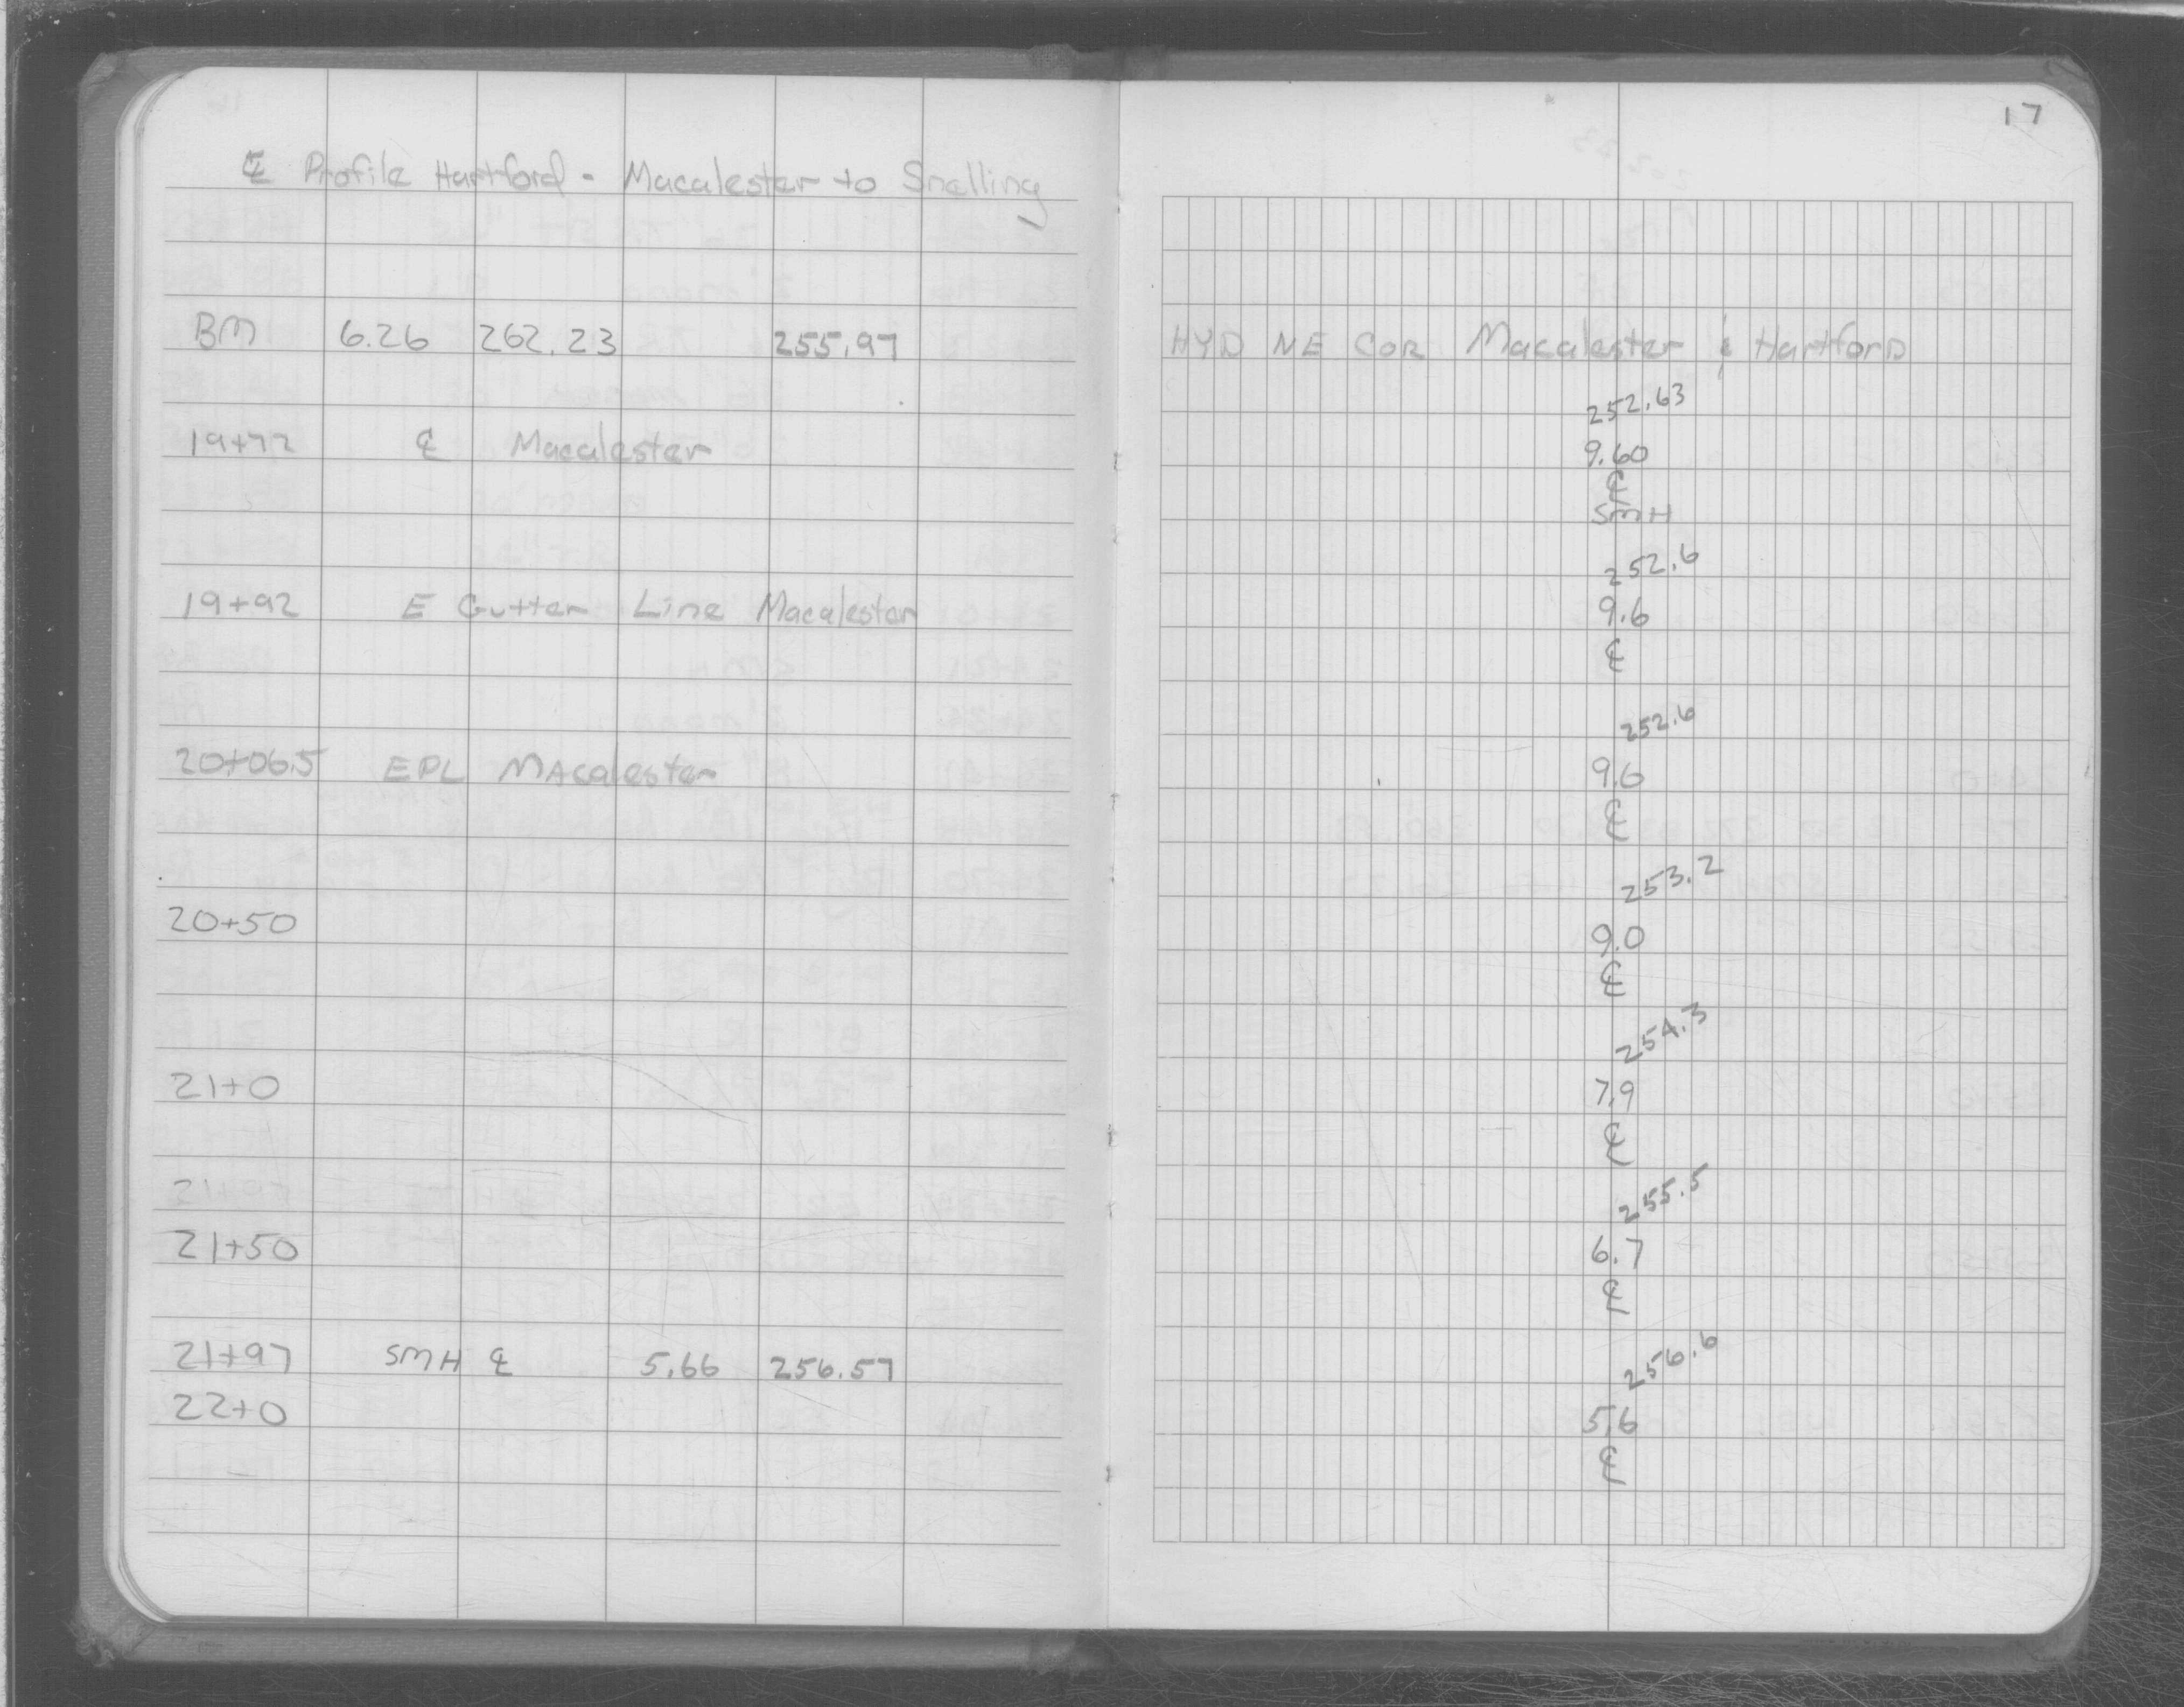 17
℄ Profile Hartford - Macalester to Snelling
BM 6.26 262.23 255.97 HYD NE COR Macalester & Hartford
252.63
19+72 ℄ Macalester 9.60
℄
SMH
252.6
19+92 E Gutter Line Macalester 9.6
℄
252.6
20+06.5 EPL Macalester 9.6
℄
253.2
20+50 9.0
℄
254.3
21+0 7.9
℄
21+97
255.5
21+50 6.7
℄
256.6
21+97 SMH ℄ 5.66 256.57
22+0 5.6
℄